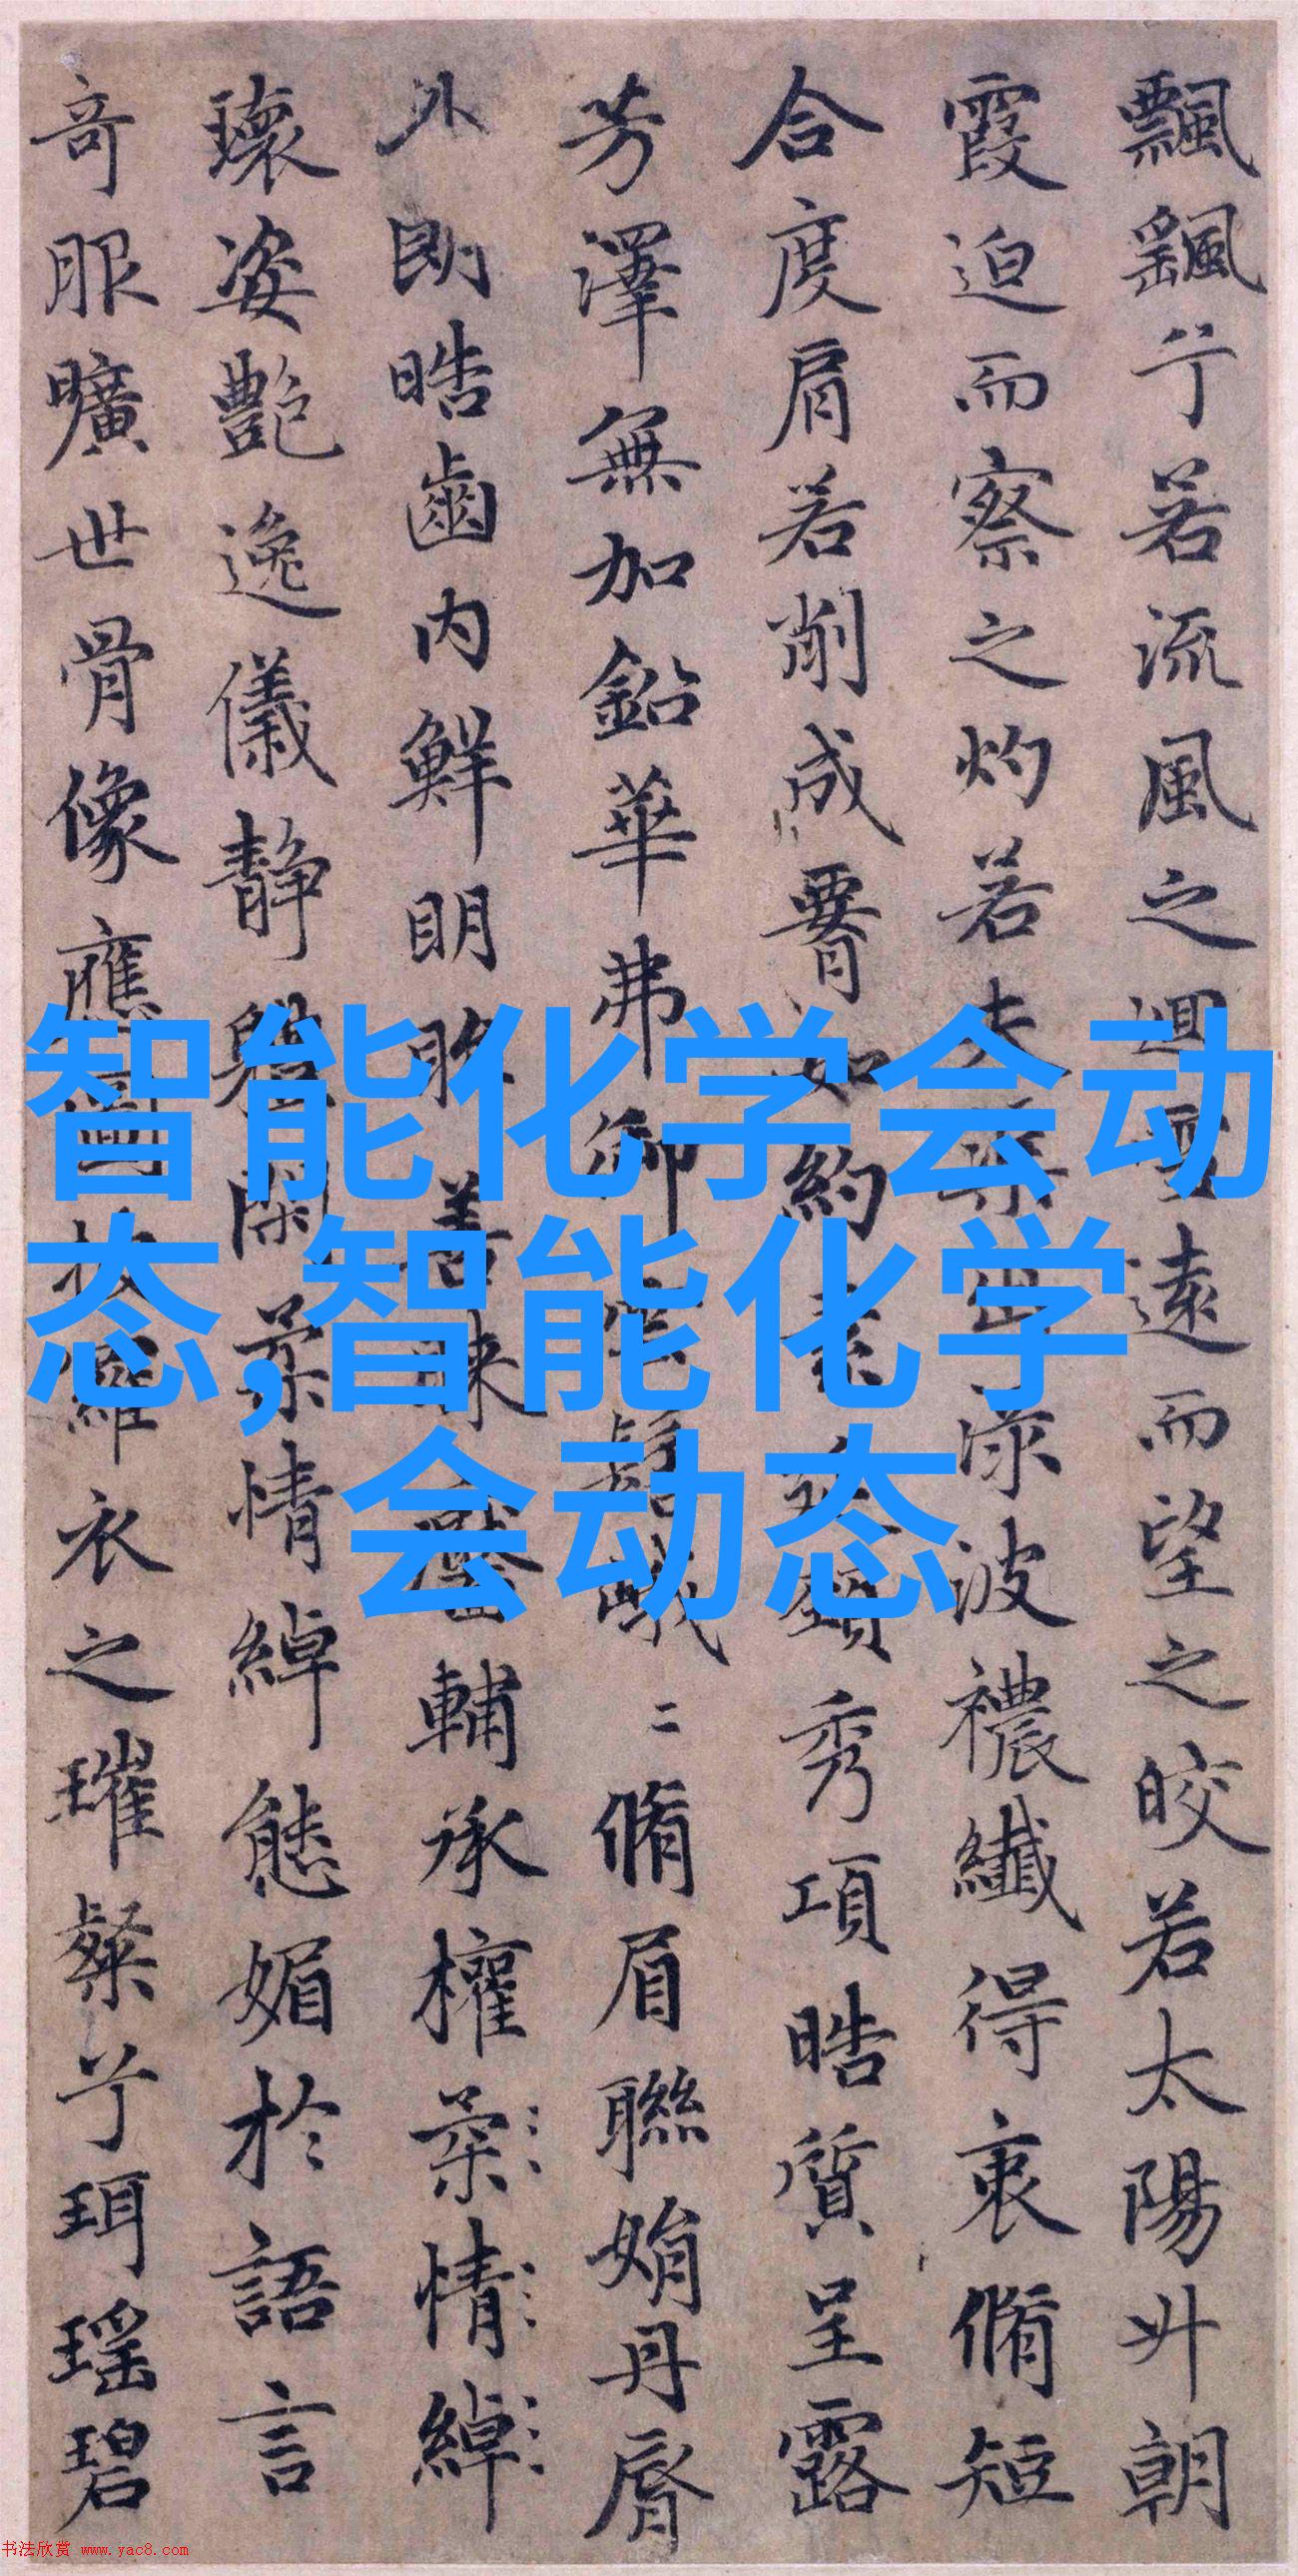 飄飖兮若流風之迴雪遠而望之皎若太陽升朝
霞迫而察之灼若夫蕖出淥波襛纖得衷脩短
合度肩若削成署如約素延頸秀項皓質呈露
芳澤無加鉛華弗御雲髻峨〻脩眉聯娟丹脣
外朗皓齒内鮮明眸善睞靨輔承權柔情綽
瓌姿艷逸儀静體閑柔情綽態媚於語言
奇服曠世骨像應圖披羅衣之璀粲兮珥瑶碧
智能化学会动
态,智能化学
会动态
书法欣赏 www.yac8.com